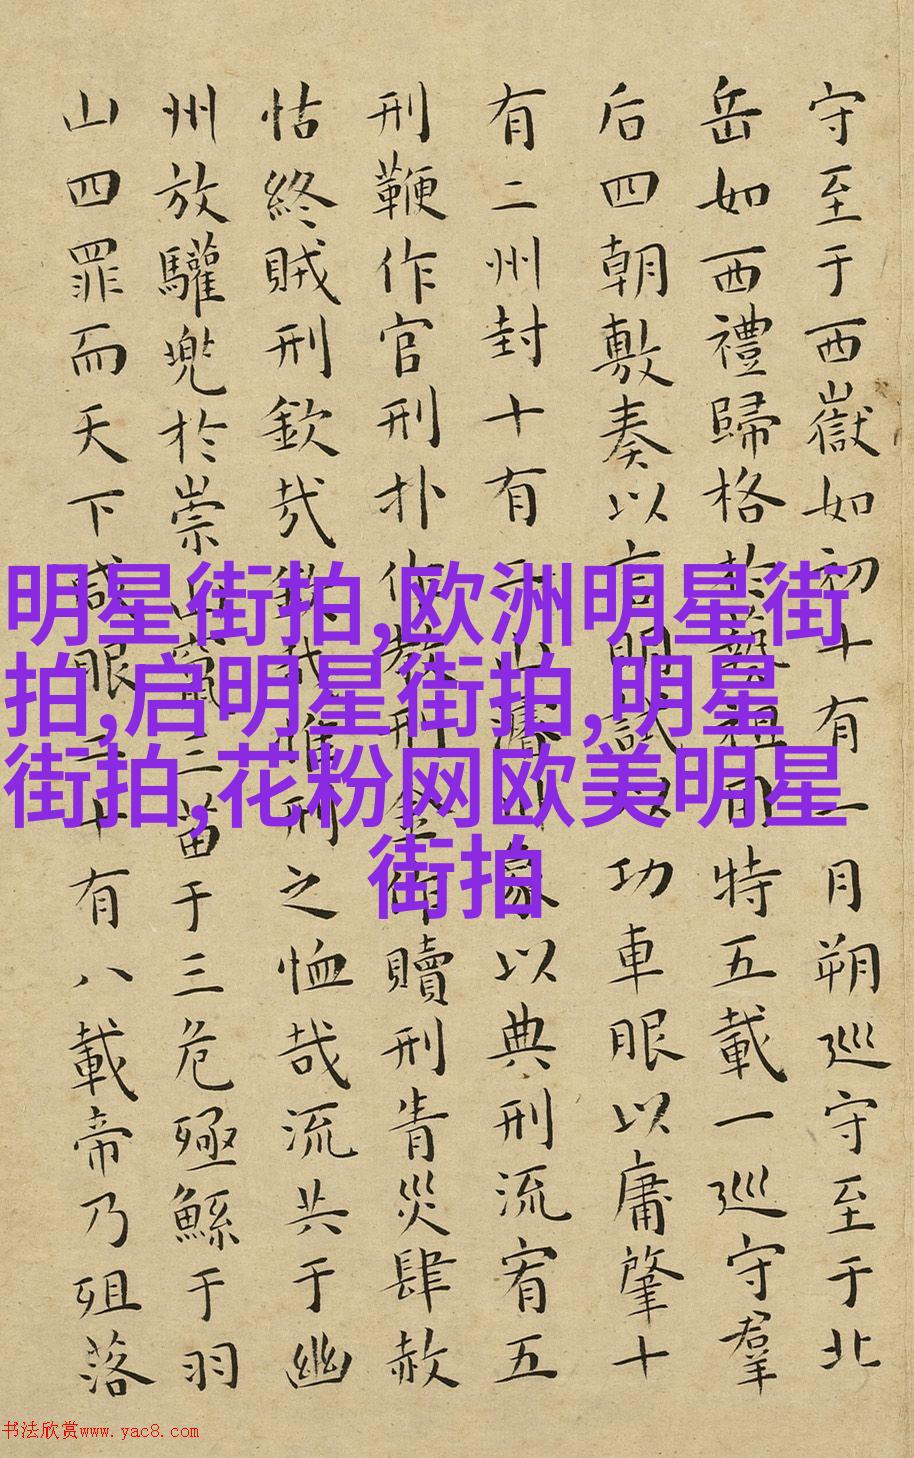 守至于西嶽如初十有一月朔巡守至于北
岳如西禮歸格於藝祖用特五載一巡守羣
后四朝敷奏以言明試以功車服以庸肇十
有二州封十有二山濬川象以典刑流宥五
刑鞭作官刑扑作教刑金作贖刑眚災肆赦
怙終賊刑欽哉欽哉惟刑之恤哉流共于幽
州放驩兜於崇山竄三苗于三危殛鯀于羽
山四罪而天下咸服二十有八載帝乃殂落
明星街拍,欧洲明星街
拍,启明星街拍,明星
街拍,花粉网欧美明星
街拍
书法欣赏www.yac8.com